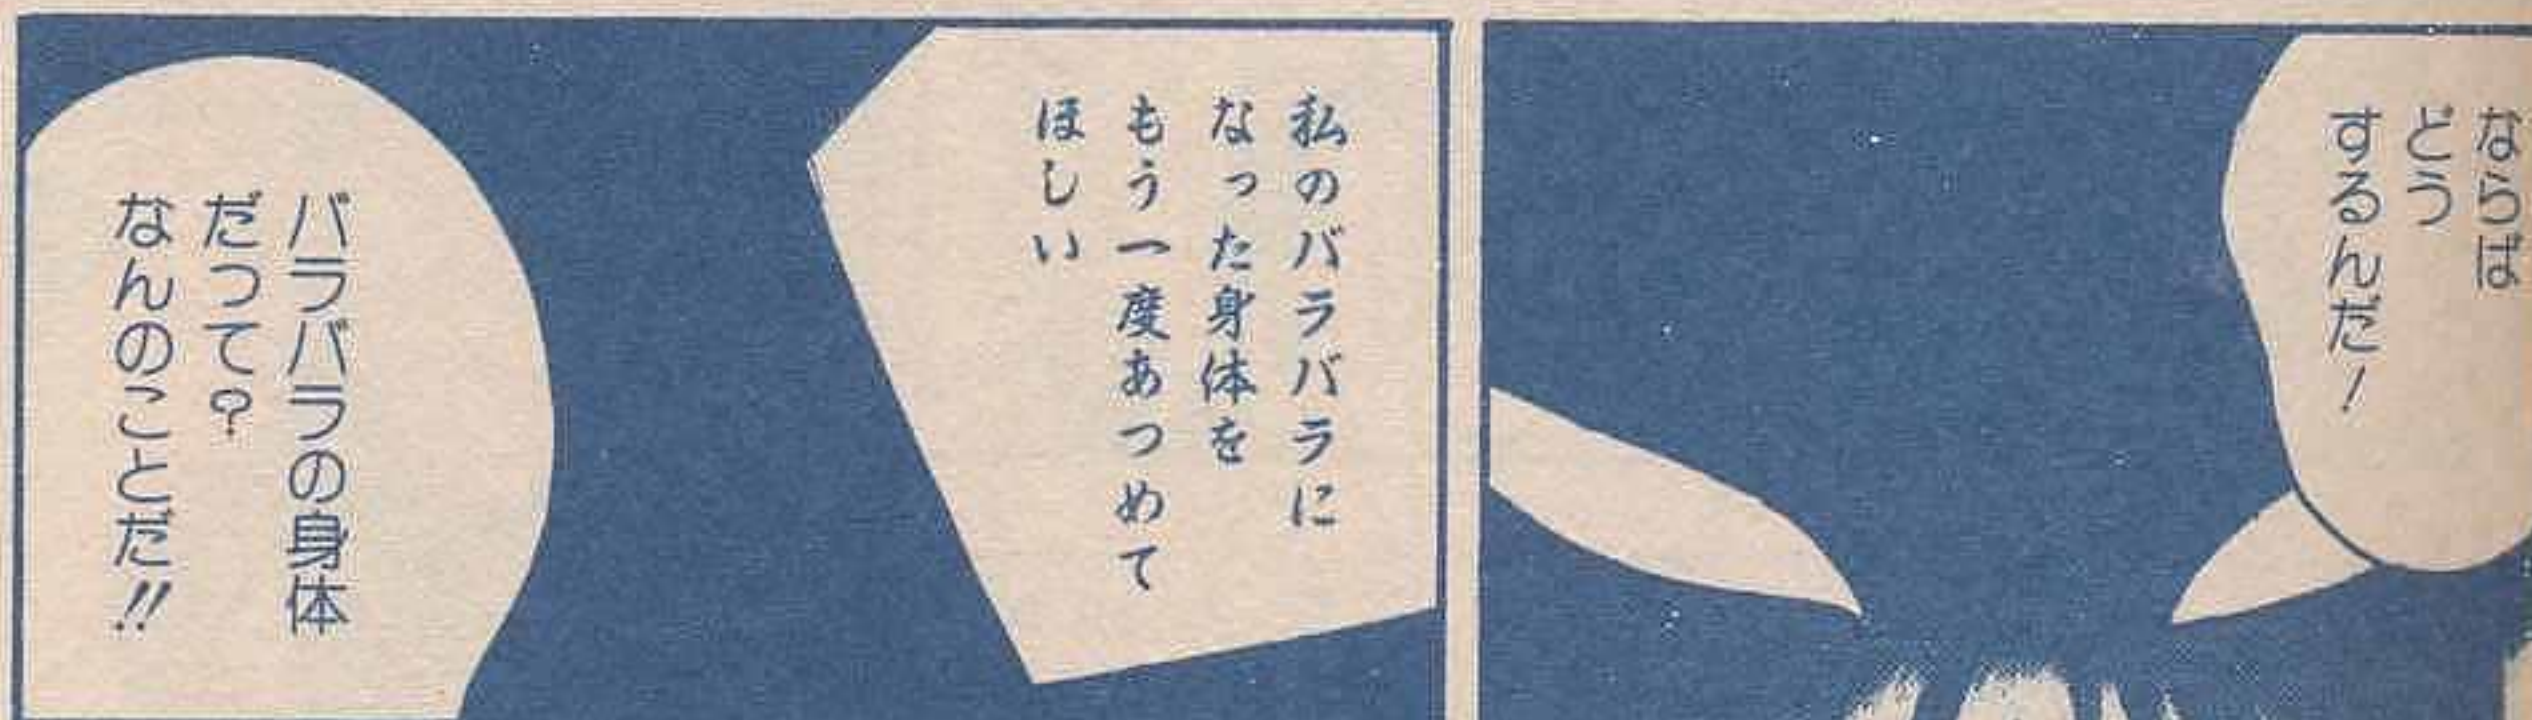 ならば
どう
するんだ！
私のバラバラに
なった身体を
もう一度あつめて
ほしい
バラバラの身体
だって？
なんのことだ!!